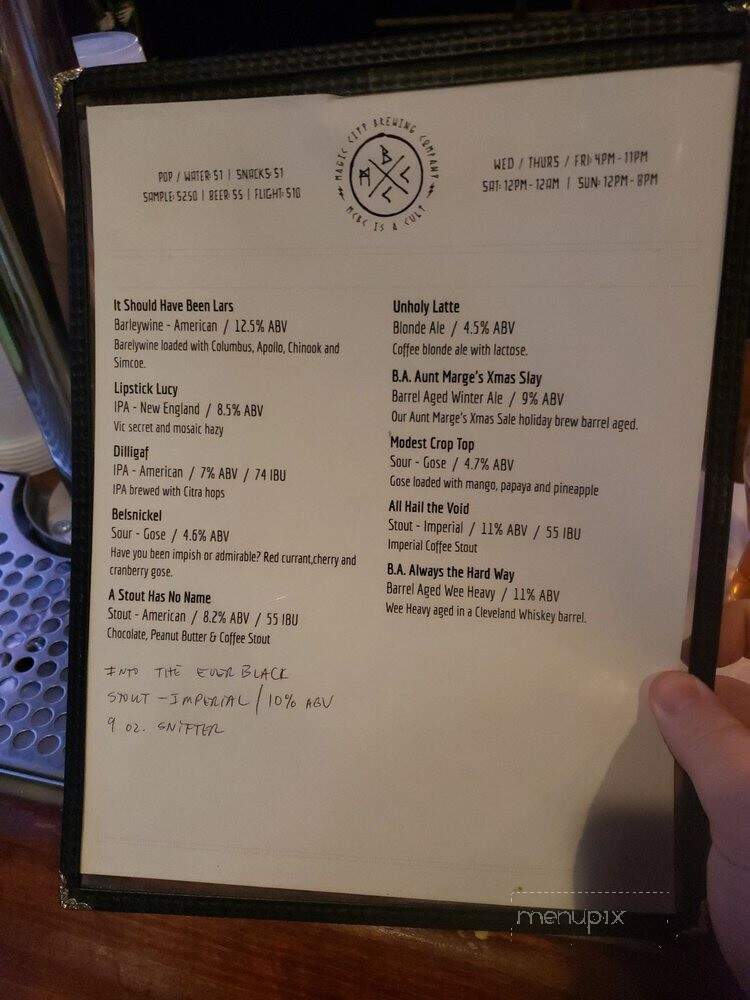 POP / WATER: $1 | SNACKS: $1
SAMPLE: $2.50 | BEER: $5 | FLIGHT: $10
MAGIC CITY BREWING COMPANY
M B C C
MCBC IS A CULT
WED / THURS / FRI: 4PM - 11PM
SAT: 12PM - 12AM | SUN: 12PM - 8PM
It Should Have Been Lars
Barleywine - American / 12.5% ABV
Barelywine loaded with Columbus, Apollo, Chinook and
Simcoe.
Lipstick Lucy
IPA - New England / 8.5% ABV
Vic secret and mosaic hazy
Dilligaf
IPA - American / 7% ABV / 74 IBU
IPA brewed with Citra hops
Belsnickel
Sour - Gose / 4.6% ABV
Have you been impish or admirable? Red currant,cherry and
cranberry gose.
A Stout Has No Name
Stout - American / 8.2% ABV / 55 IBU
Chocolate, Peanut Butter & Coffee Stout
INTO THE EVER BLACK
STOUT - IMPERIAL / 10% ABV
9 OZ. SNIFTER
Unholy Latte
Blonde Ale / 4.5% ABV
Coffee blonde ale with lactose.
B.A. Aunt Marge's Xmas Slay
Barrel Aged Winter Ale / 9% ABV
Our Aunt Marge's Xmas Sale holiday brew barrel aged.
Modest Crop Top
Sour - Gose / 4.7% ABV
Gose loaded with mango, papaya and pineapple
All Hail the Void
Stout - Imperial / 11% ABV / 55 IBU
Imperial Coffee Stout
B.A. Always the Hard Way
Barrel Aged Wee Heavy / 11% ABV
Wee Heavy aged in a Cleveland Whiskey barrel.
menupix